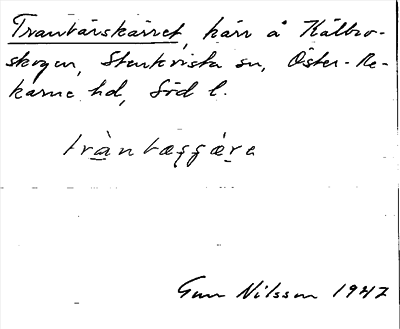 Tranbärskärret, kärr å Kålbo-
skogen, Stenkvista sn, Öster-Re-
karne hd, Söd l.
Gun Nilsson 1947